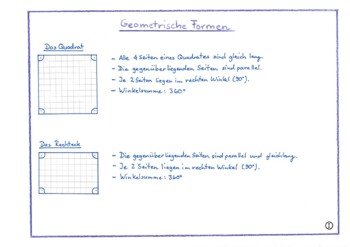 Geometrische Formen
Das Quadrat
- Alle 4 Seiten eines Quadrates sind gleich lang.
- Die gegenüberliegenden Seiten sind parallel.
- Je 2 Seiten liegen im rechten Winkel (90°).
- Winkelsumme: 360°
Das Rechteck
- Die gegenüberliegenden Seiten sind parallel und gleichlang.
- Je 2 Seiten liegen im rechten Winkel (90°).
- Winkelsumme: 360°
1